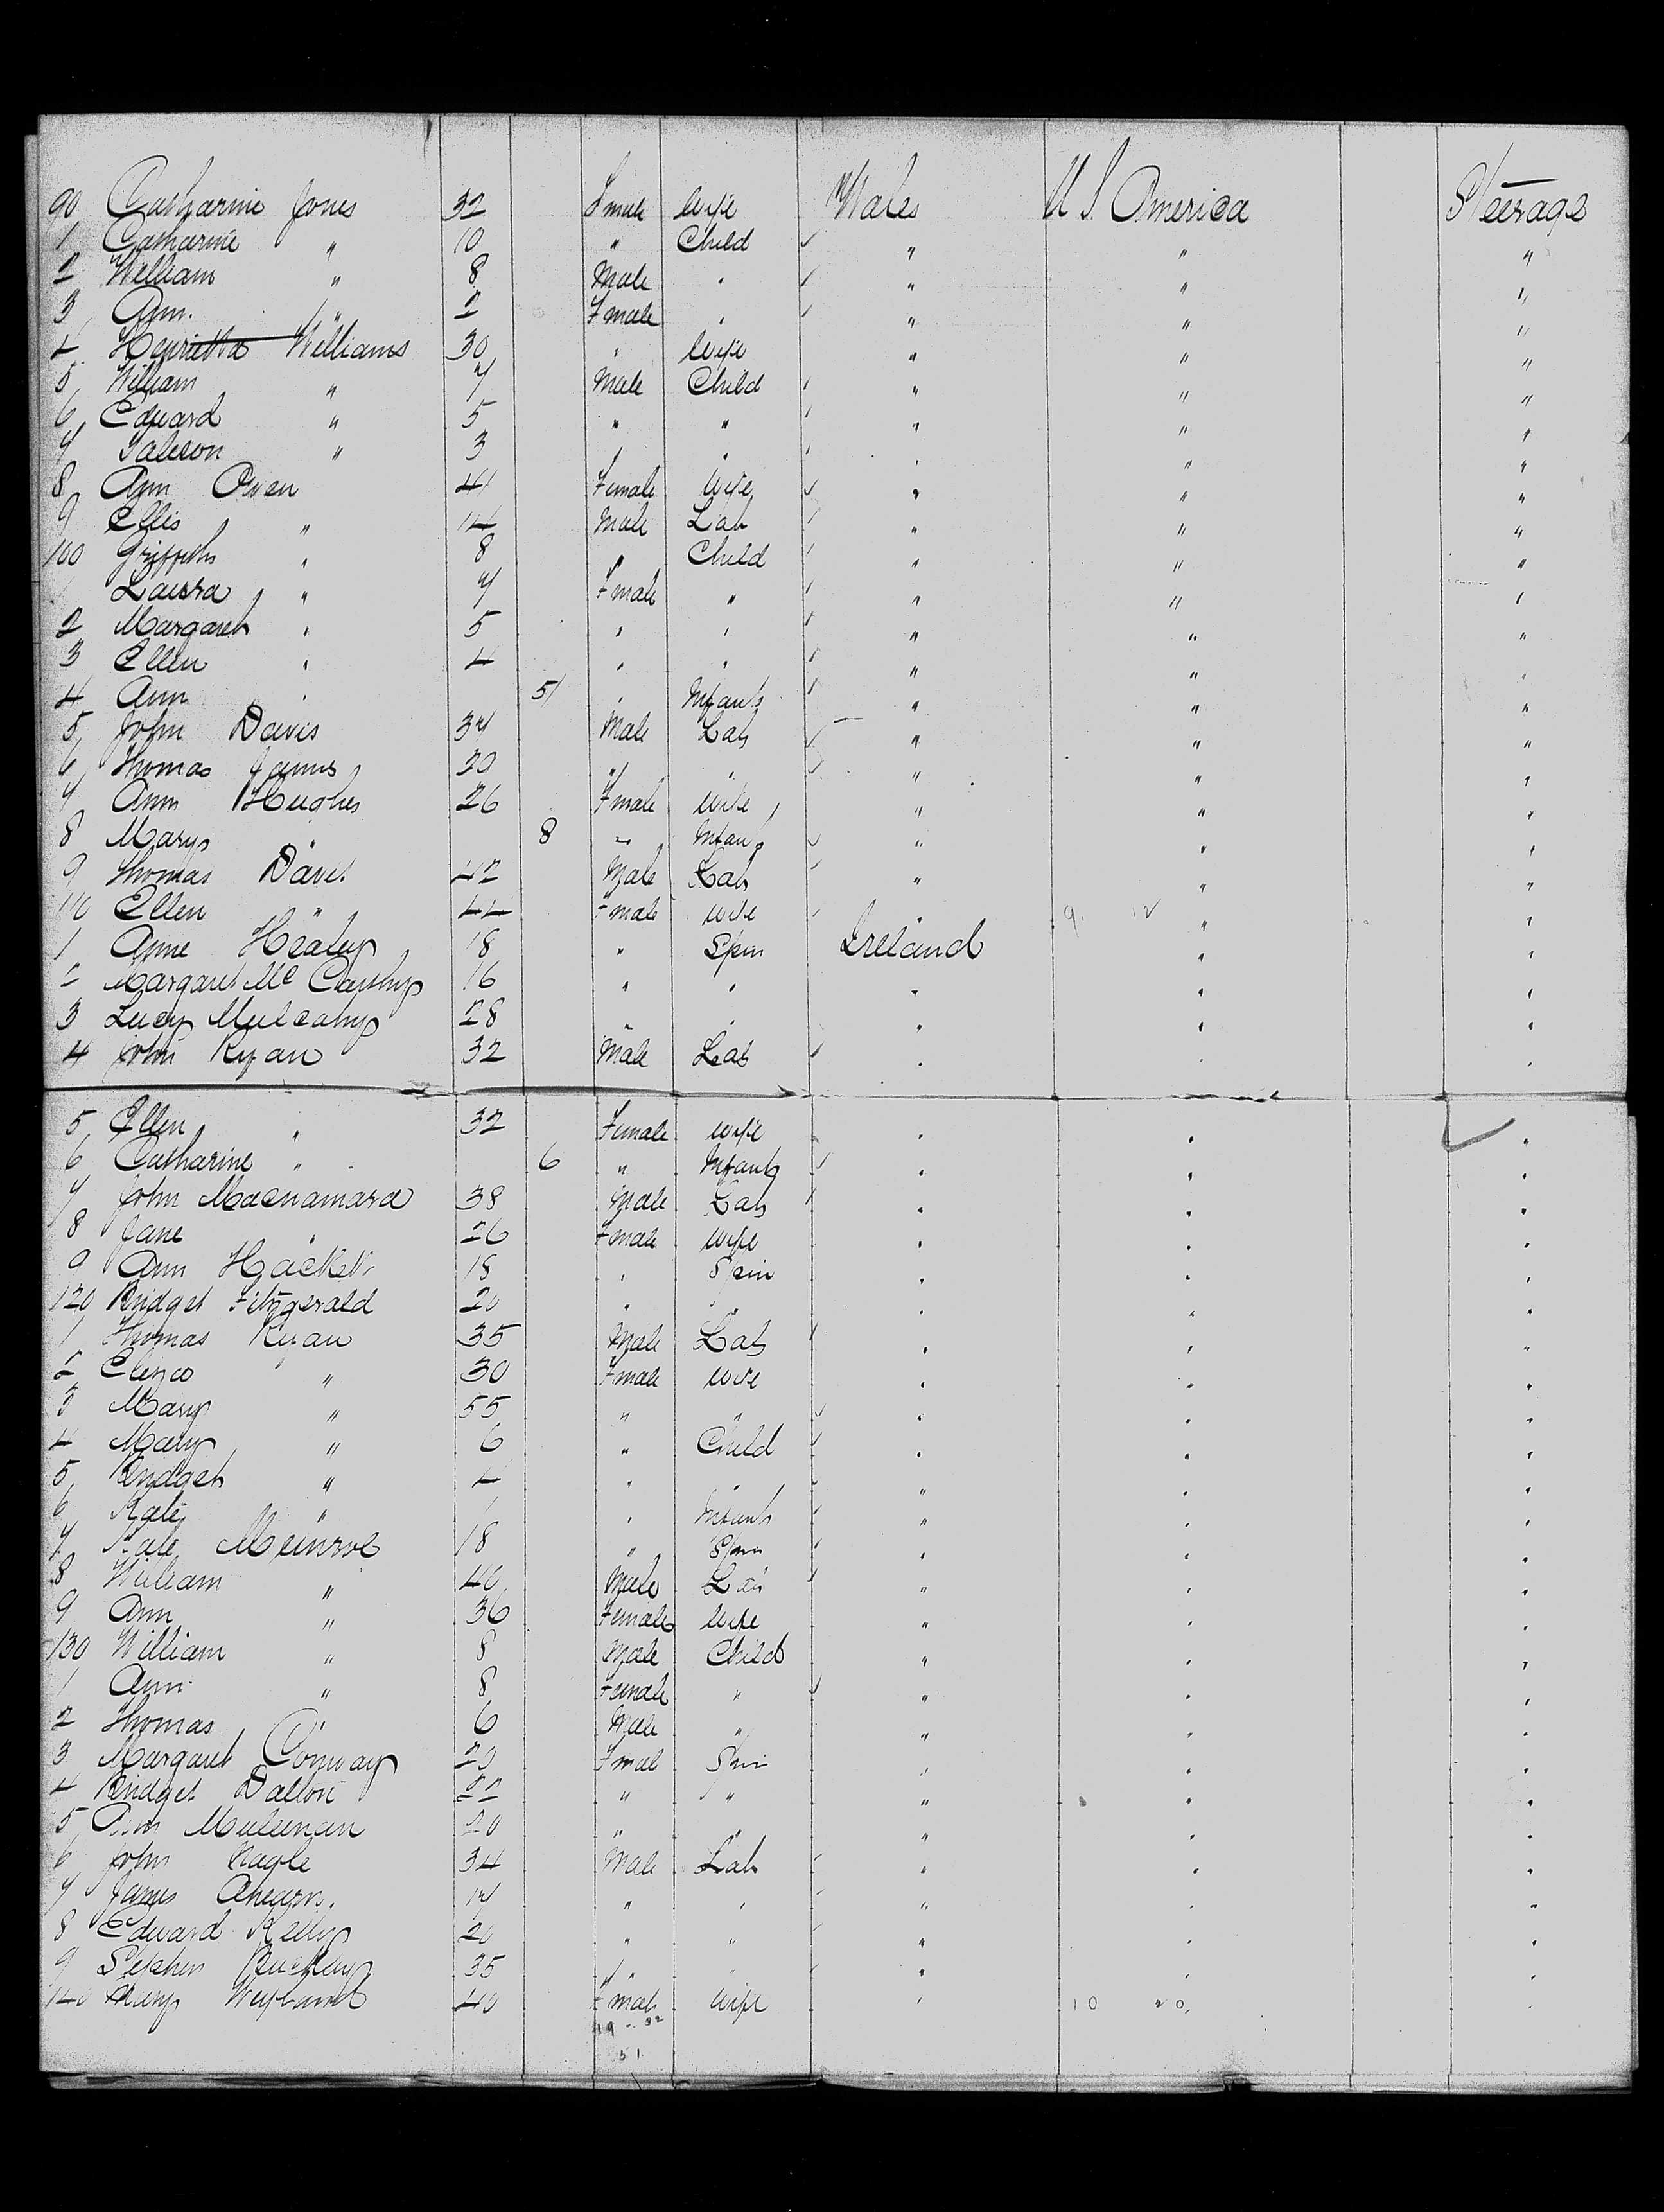 90 Catharine Jones 32 Female Wife Wales U S. America Steerage
1 Catharine " 10 " Child " " "
2 William " 8 Male " " " "
3 Ann " 2 Female " " " "
4 Henrietta Williams 30 " Wife " " "
5 William " 7 Male Child " " "
6 Edward " 5 " " " " "
7 " 3 " " " " "
8 Ann Owen 41 Female Wife " " "
9 Ellis " 14 Male Lab " " "
100 Griffith " 8 " Child " " "
1 Laura " 7 Female " " " "
2 Margaret " 5 " " " " "
3 Ellen " 4 " " " " "
4 Ann " 5 " Infant " " "
5 John Davis 37 Male Lab " " "
6 Thomas James 20 " " " " "
7 Ann Hughes 26 Female Wife " " "
8 Mary " 8 " Infant " " "
9 Thomas Davis 42 Male Lab " " "
110 Ellen " 44 Female Wife " 9 12 " "
1 Anne Healey 18 " Spin Ireland " "
2 Margaret McCarthy 16 " " " " "
3 Lucy Mulcahy 28 " " " " "
4 John Ryan 32 Male Lab " " "
5 Ellen " 32 Female Wife " " "
6 Catharine " 6 " Infant " " "
7 John Macnamara 38 Male Lab " " "
8 Jane " 26 Female Wife " " "
9 Ann Hackett 18 " Spin " " "
120 Bridget Fitzgerald 20 " " " " "
1 Thomas Ryan 35 Male Lab " " "
2 " 30 Female Wife " " "
3 Mary " 55 " " " " "
4 Mary " 6 " Child " " "
5 Bridget " 4 " " " " "
6 Kate " 1 " Infant " " "
7 Kate Munroe 18 " Spin " " "
8 William " 40 Male Lab " " "
9 Ann " 36 Female Wife " " "
130 William " 8 Male Child " " "
1 Ann " 8 Female " " " "
2 Thomas " 6 Male " " " "
3 Margaret Conway 20 Female Spin " " "
4 Bridget Dalton 22 " " " " "
5 Ann 20 " " " " "
6 John Nagle 34 Male Lab " " "
7 James Ahearn 17 " " " " "
8 Edward Kelly 20 " " " " "
9 Stephen Buckley 35 " " " " "
140 Mary 40 Female Wife " 10 20 " "
51